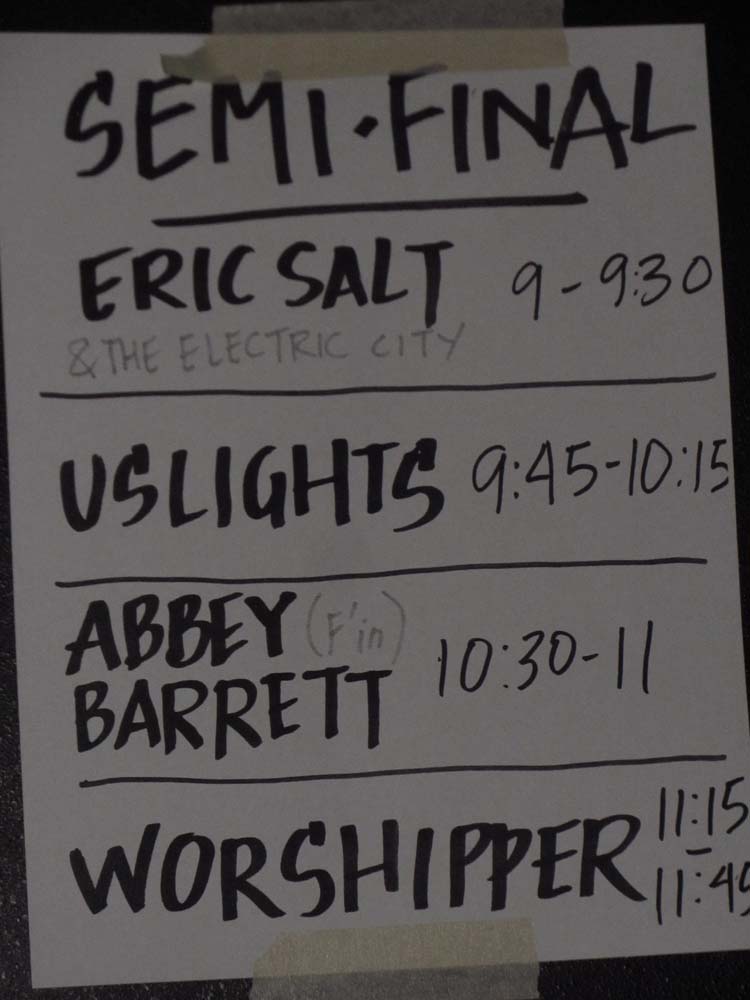 SEMI·FINAL
ERIC SALT 9-9:30
& THE ELECTRIC CITY
USLIGHTS 9:45-10:15
ABBEY (F'in)
BARRETT 10:30-11
WORSHIPPER 11:15
-
11:45